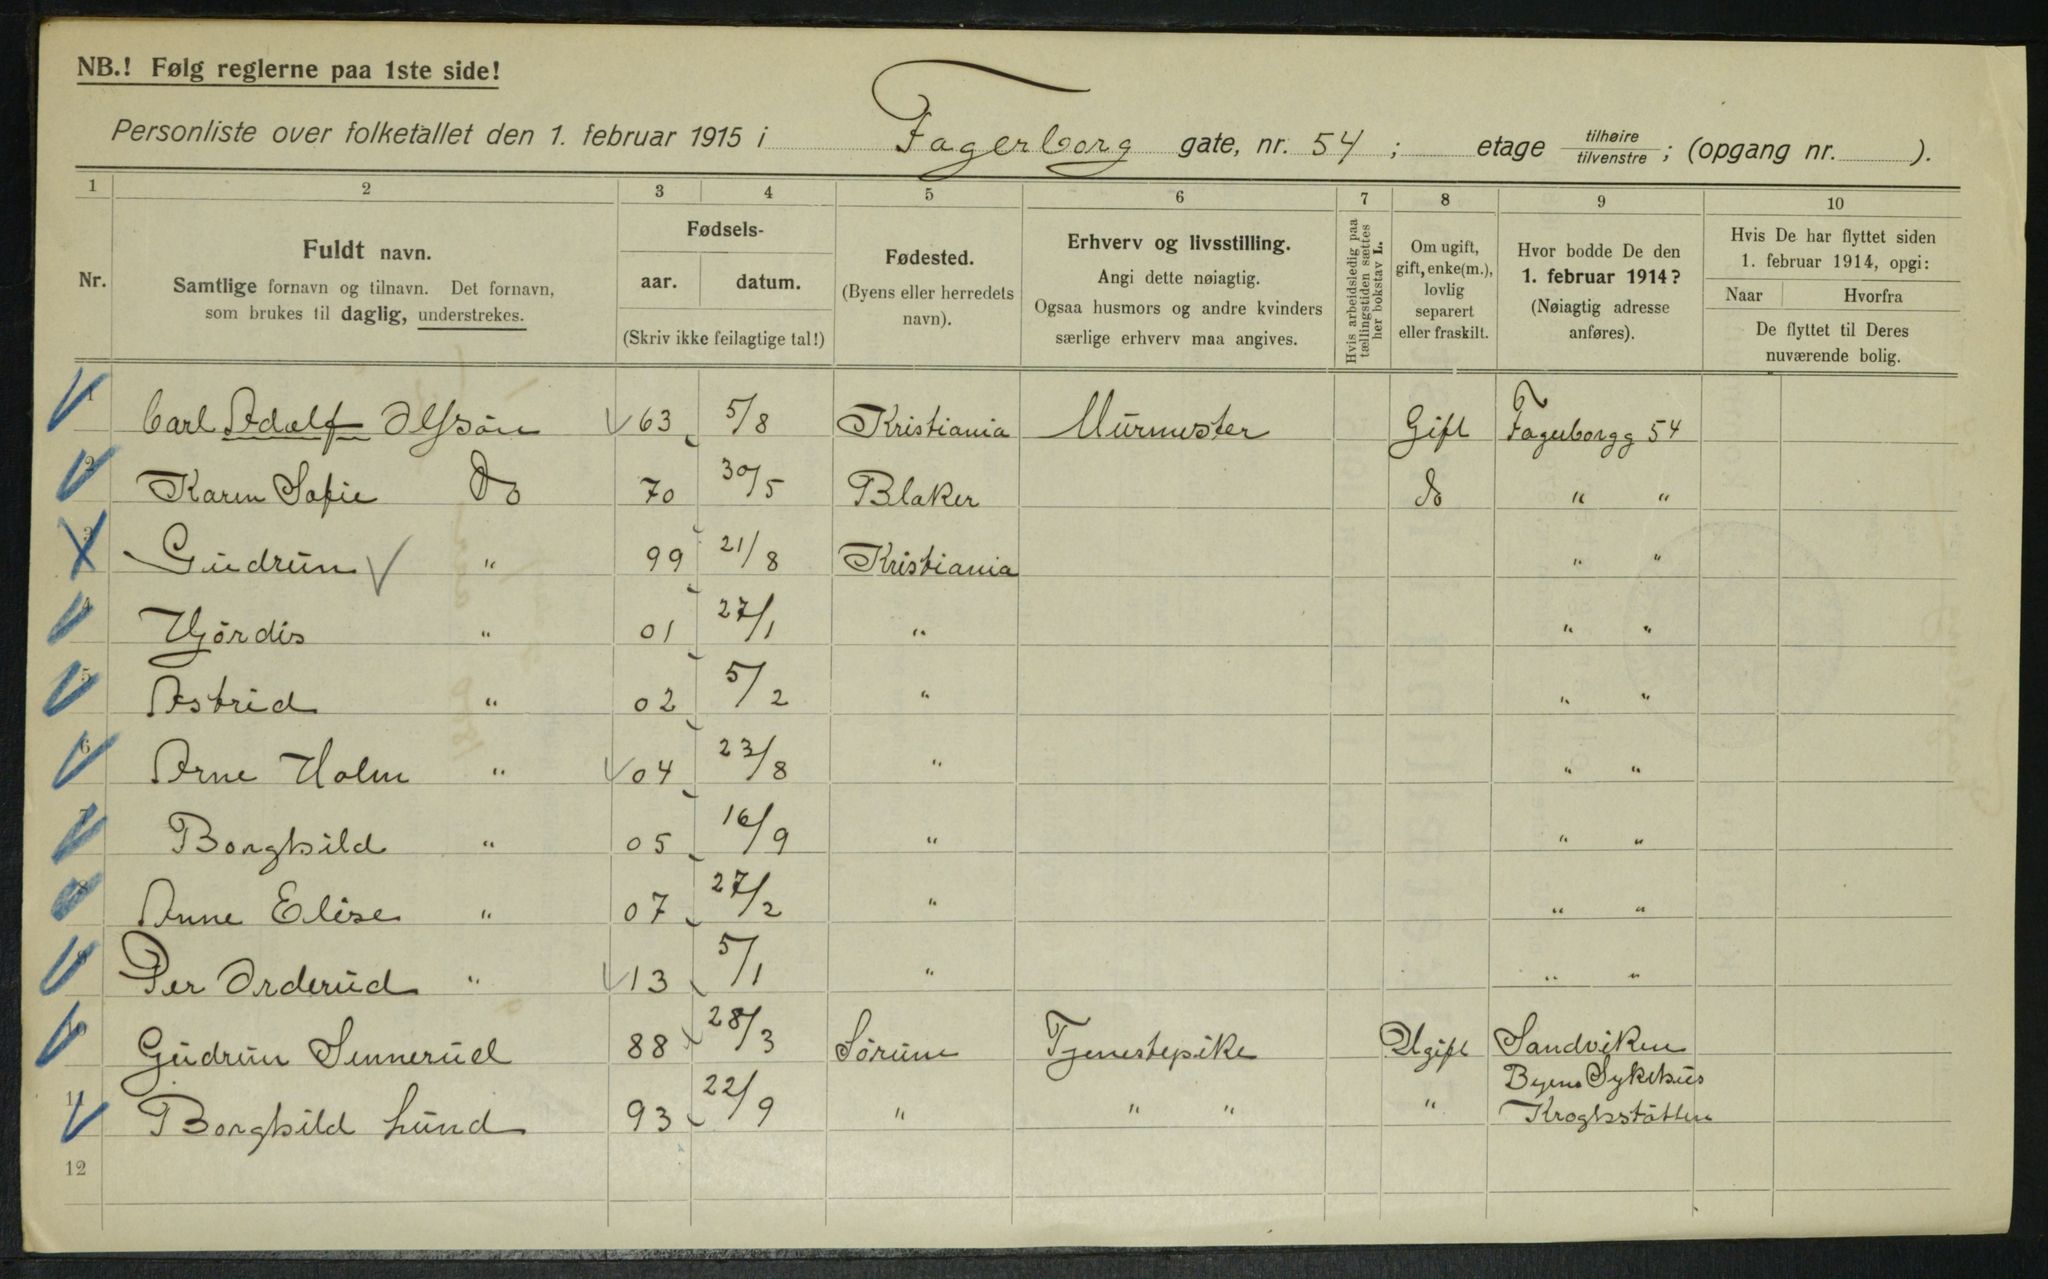 NB.! Følg reglerne paa 1ste side!
Personliste over folketallet den 1. februar 1915 i Fagerborg gate, nr. 54 ; etage tilhøire tilvenstre ; (opgang nr. ).
1 2 3 4 5 6 7 8 9 10
Nr.
Fuldt navn.
Samtlige fornavn og tilnavn. Det fornavn,
som brukes til daglig, understrekes.
Fødsels-
aar. datum.
(Skriv ikke feilagtige tal!)
Fødested.
(Byens eller herredets
navn).
Erhverv og livsstilling.
Angi dette nøiagtig.
Ogsaa husmors og andre kvinders
særlige erhverv maa angives.
Hvis arbeidsledig paa
tællingstiden sættes
her bokstav L.
Om ugift,
gift, enke(m.),
lovlig
separert
eller fraskilt.
Hvor bodde De den
1. februar 1914?
(Nøiagtig adresse
anføres).
Hvis De har flyttet siden
1. februar 1914, opgi:
Naar Hvorfra
De flyttet til Deres
nuværende bolig.
1 Carl Adolf Olssøn 63 5/8 Kristiania Murmester Gift Fagerborgg 54
2 Karen Sofie Do 70 30/5 Blaker do " "
3 Gudrun " 99 21/8 Kristiania " "
4 Hjørdis " 01 27/1 " " "
5 Astrid " 02 5/2 " " "
6 Arne Holm " 04 23/8 " " "
7 Borghild " 05 16/9 " " "
8 Anne Elise " 07 27/2 " " "
9 Per Orderud " 13 5/1 " " "
10 Gudrun Sennerud 88 28/3 Sørum Tjenestepike Ugift Sandviken
Byens Sykehus
11 Borghild Lund 93 22/9 " " " " Kroghstøtten
12